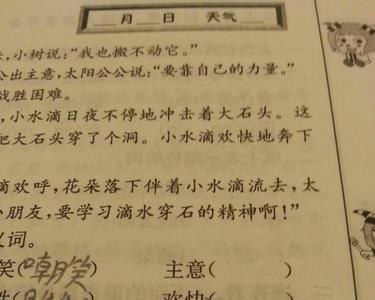 月 日 天气
,小树说:“我也搬不动它。”
公出主意,太阳公公说:“要靠自己的力量。”
战胜困难。
,小水滴日夜不停地冲击着大石头。这
把大石头穿了个洞。小水滴欢快地奔下
滴欢呼,花朵落下伴着小水滴流去,太
小朋友,要学习滴水穿石的精神啊!”
义词。
笑(嘲笑) 主意( )
欢快(